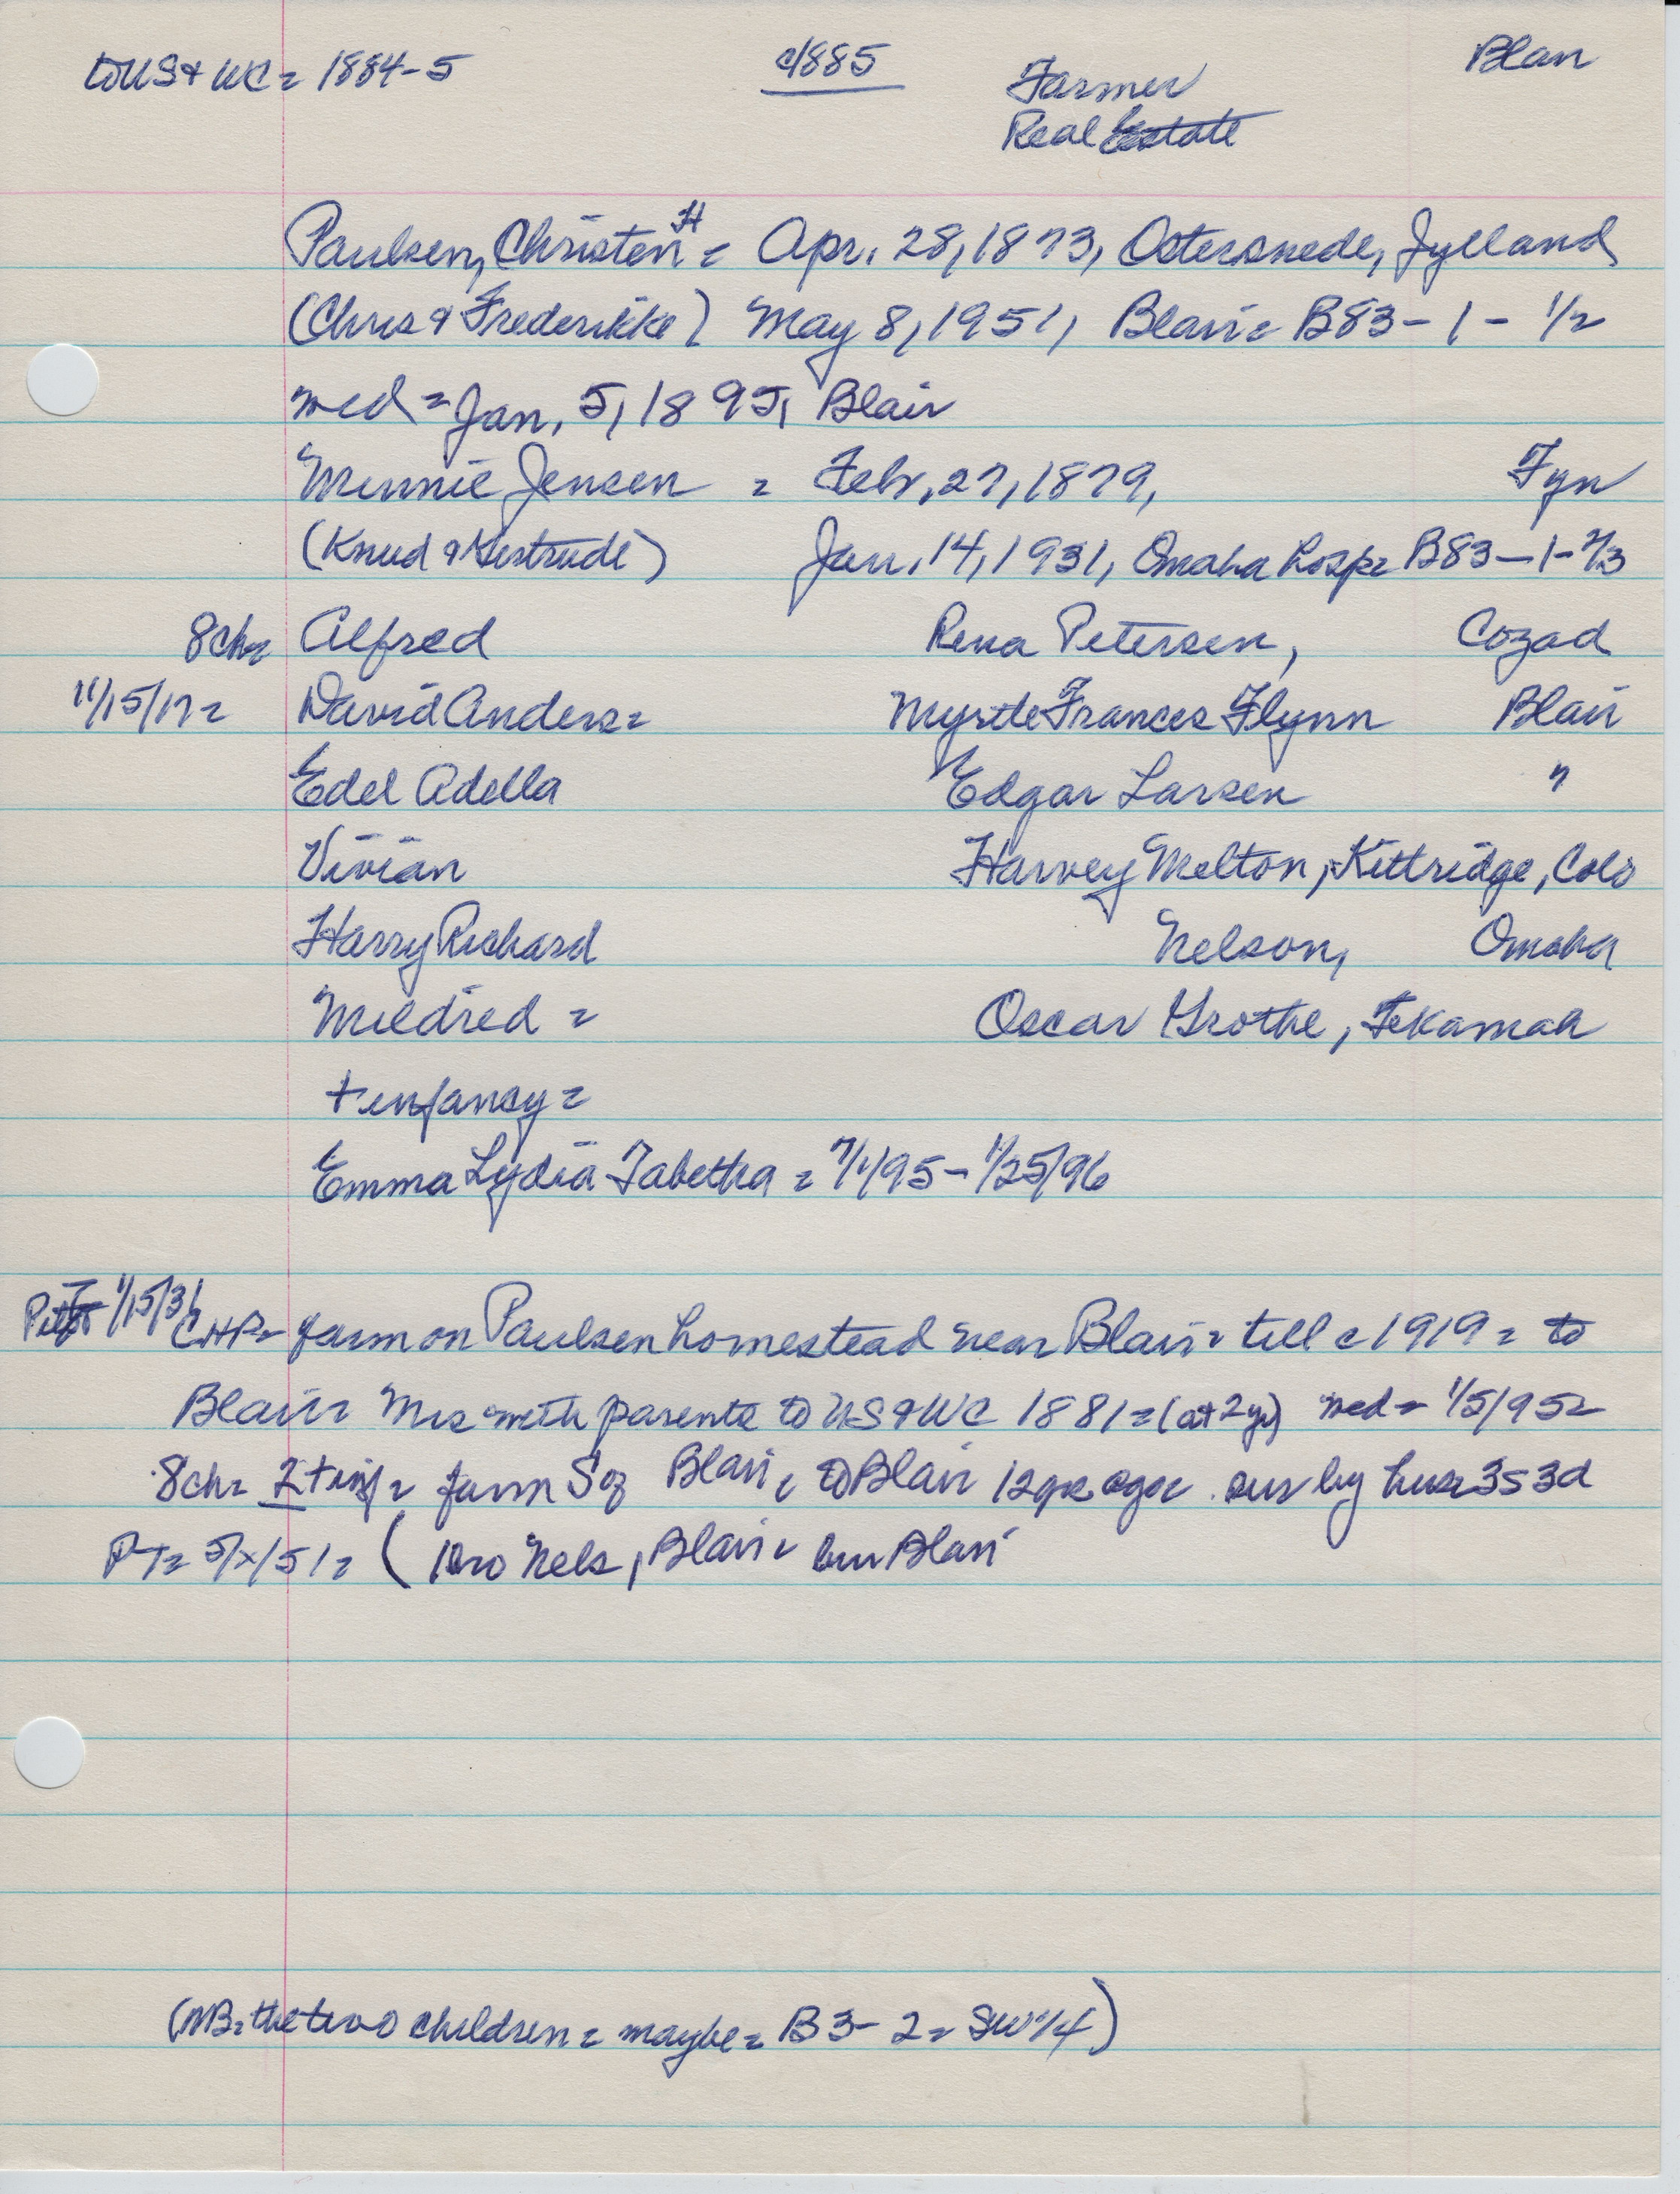 to US & WC = 1884-5 c1885 Farmer Blair
Real Estate
Paulsen, Christen H = Apr. 28, 1873, Ostersnede, Jylland
(Chris & Frederikke) May 8, 1951, Blair = B83-1-1/2
med = Jan. 5, 1895, Blair
Minnie Jensen = Febr. 27, 1879, Fyn
(Knud & ) Jan. 14, 1931, Omaha Hosp = B83-1-2/3
8ch = Alfred Rena Petersen, Cozad
11/15/17 = David Anders = Myrtle Frances Flynn Blair
Edel Adella Edgar Larsen "
Vivian Harvey Melton, Kittridge, Colo
Harry Richard Nelson, Omaha
Mildred = Oscar Grothe, Tekamah
+ enfancy =
Emma Lydia Tabetha = 7/1/95 - 1/25/96
1/15/31 CHP = farm on Paulsen homestead near Blair = till c 1919 = to
Blair = Mrs with parents to US & WC 1881 = (at 2 yr) med = 1/5/95 =
8ch = 2 + inf = farm S of Blair = to Blair 12 yrs ago = sur by hus = 3s 3d
PT = 5/x/51 = ( bro Nels, Blair = bur Blair
(NB = the two children = maybe = B3-2 = SW 1/4)